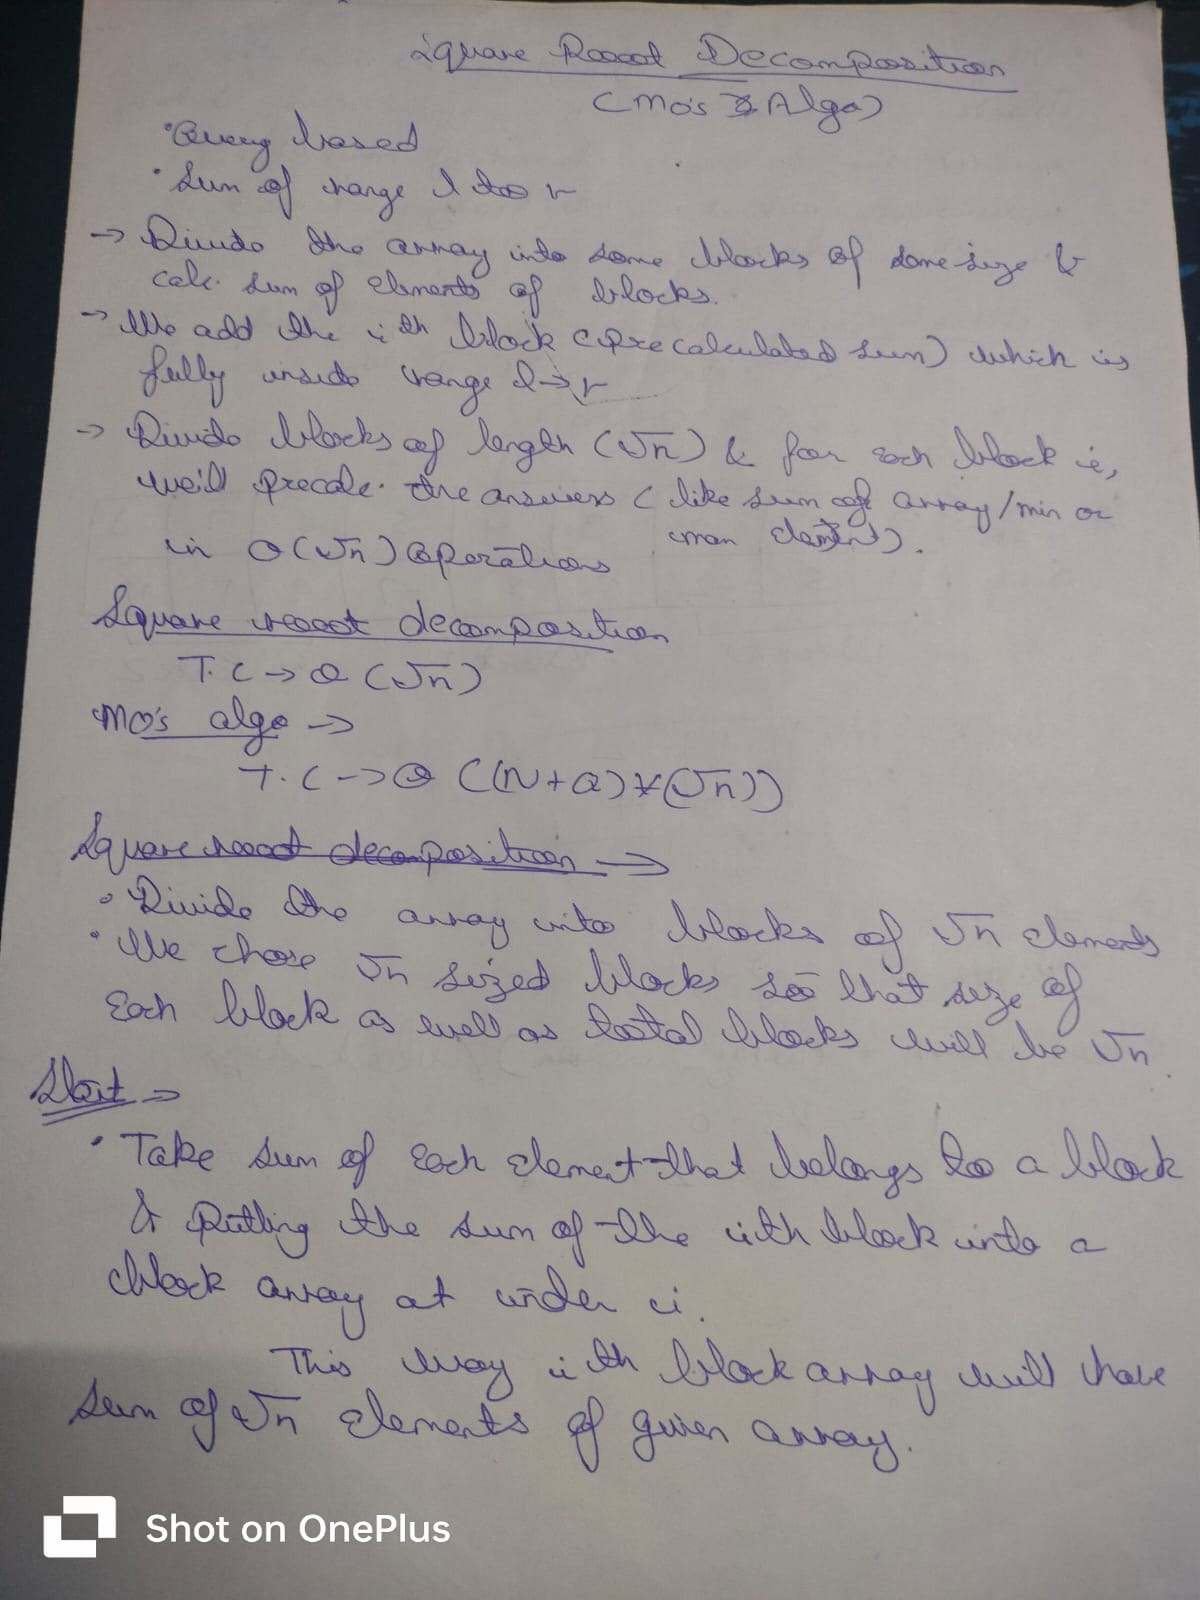 Square Root Decomposition
(Mo's Algo)
• Query based
• Sum of range l to r
→ Divide the array into some blocks of some size &
calc. sum of elements of blocks.
→ We add the ith block (precalculated sum) which is
fully inside range l→r
→ Divide blocks of length (√n) & for each block ie,
we'll precalc. the answers (like sum of array/min or
max element).
in O(√n) operations
Square root decomposition
T.C → O(√n)
Mo's algo →
T.C → O((N+Q)*(√n))
Square root decomposition →
• Divide the array into blocks of √n elements
• We chose √n sized blocks so that size of
each block as well as total blocks will be √n.
Start →
• Take sum of each element that belongs to a block
& putting the sum of the ith block into a
block array at index i.
This way ith block array will have
sum of √n elements of given array.
Shot on OnePlus